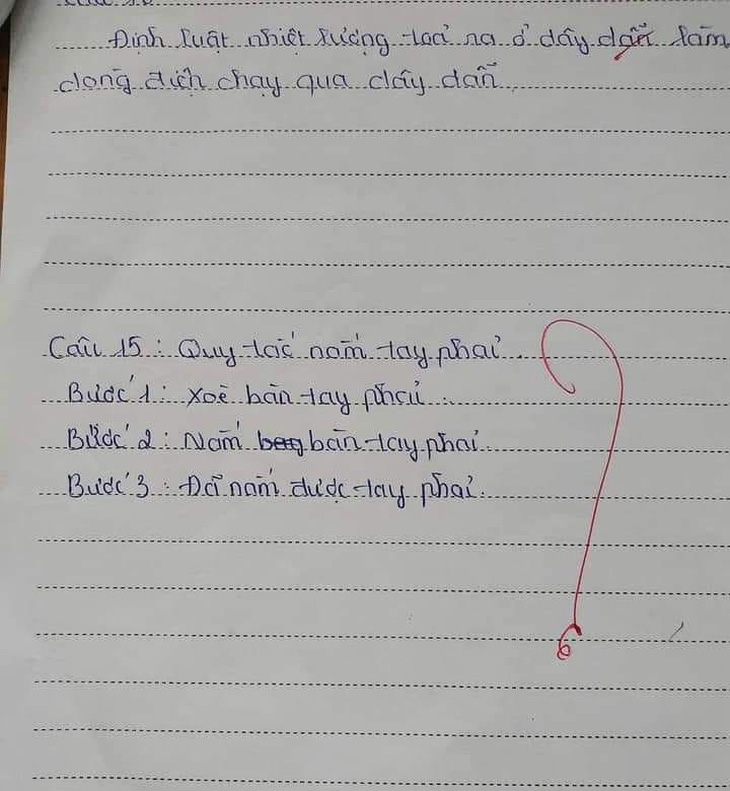 Định luật nhiệt lượng toả ra ở dây dẫn làm
dòng điện chạy qua dây dẫn.
Câu 15: Quy tắc nắm tay phải.
Bước 1: Xoè bàn tay phải.
Bước 2: Nắm bàn tay phải.
Bước 3: Đã nắm được tay phải.